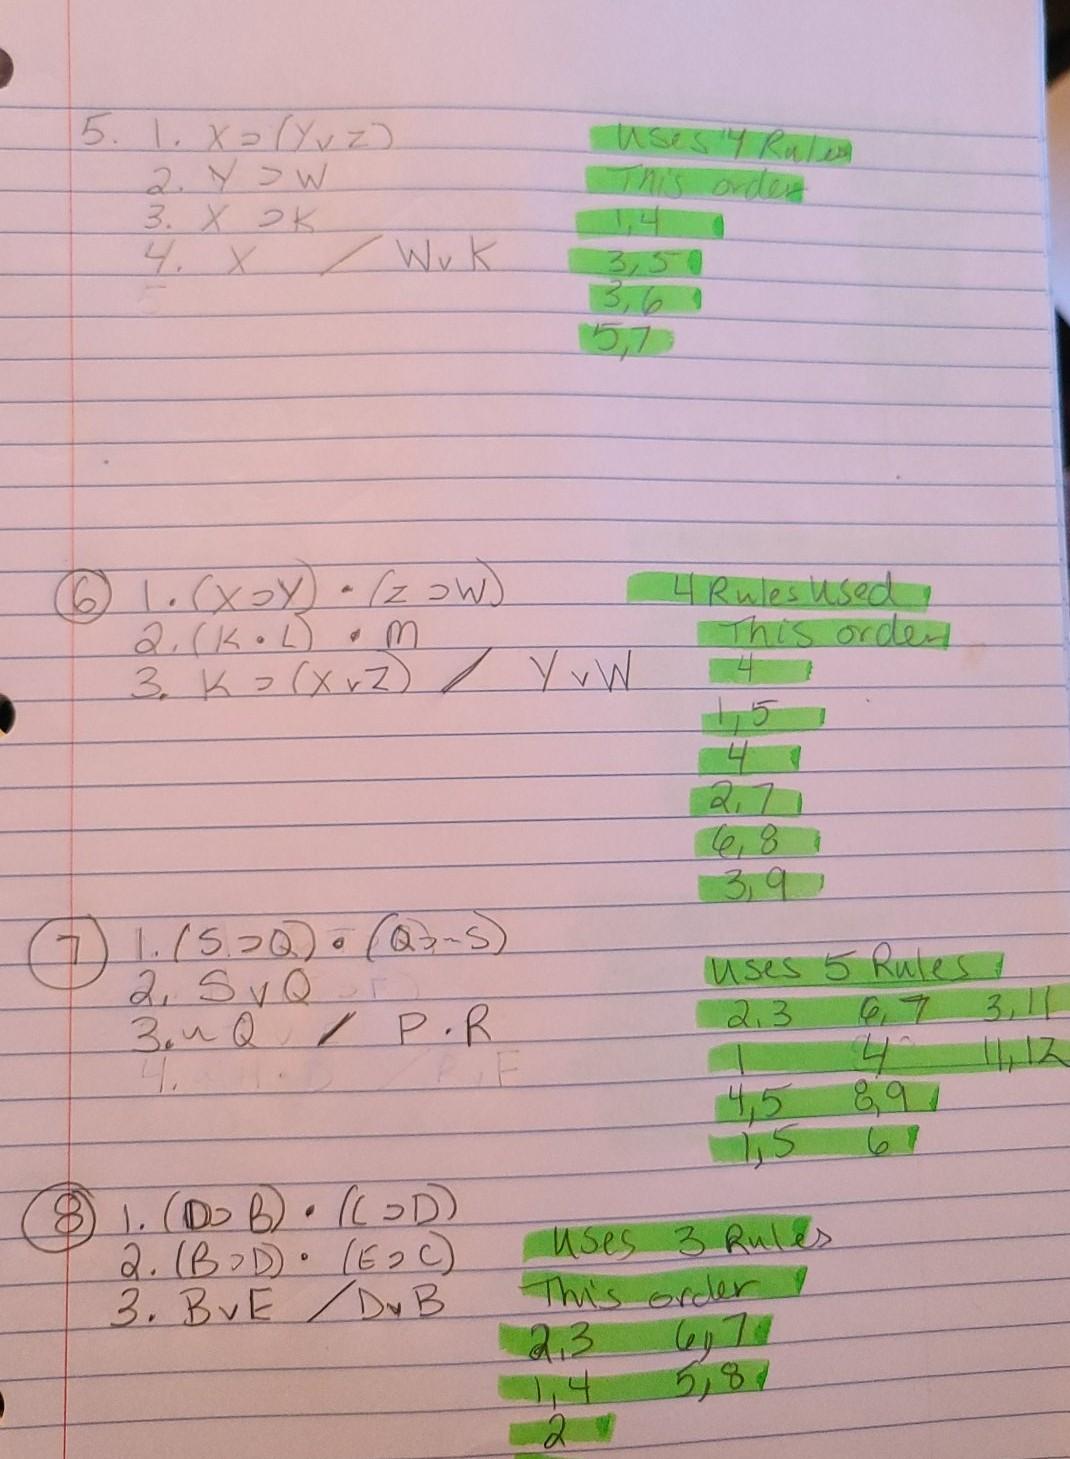 5. 1. X⊃(YvZ)
2. Y⊃W
3. X⊃K
4. X / WvK
5
Uses 4 Rules
This order
1,4
3,5
3,6
5,7
6 1. (X⊃Y) · (Z⊃W)
2. (K·L) · M
3. K⊃(XvZ) / YvW
4 Rules Used
This order
4
1,5
4
2,7
6,8
3,9
7 1. (S⊃Q) · (Q⊃~S)
2. SvQ
3. ~Q / P·R
4.
Uses 5 Rules
2,3 6,7 3,11
1 4 11,12
4,5 8,9
1,5 6
8 1. (D⊃B) · (C⊃D)
2. (B⊃D) · (E⊃C)
3. BvE / DvB
Uses 3 Rules
This order
2,3 6,7
1,4 5,8
2